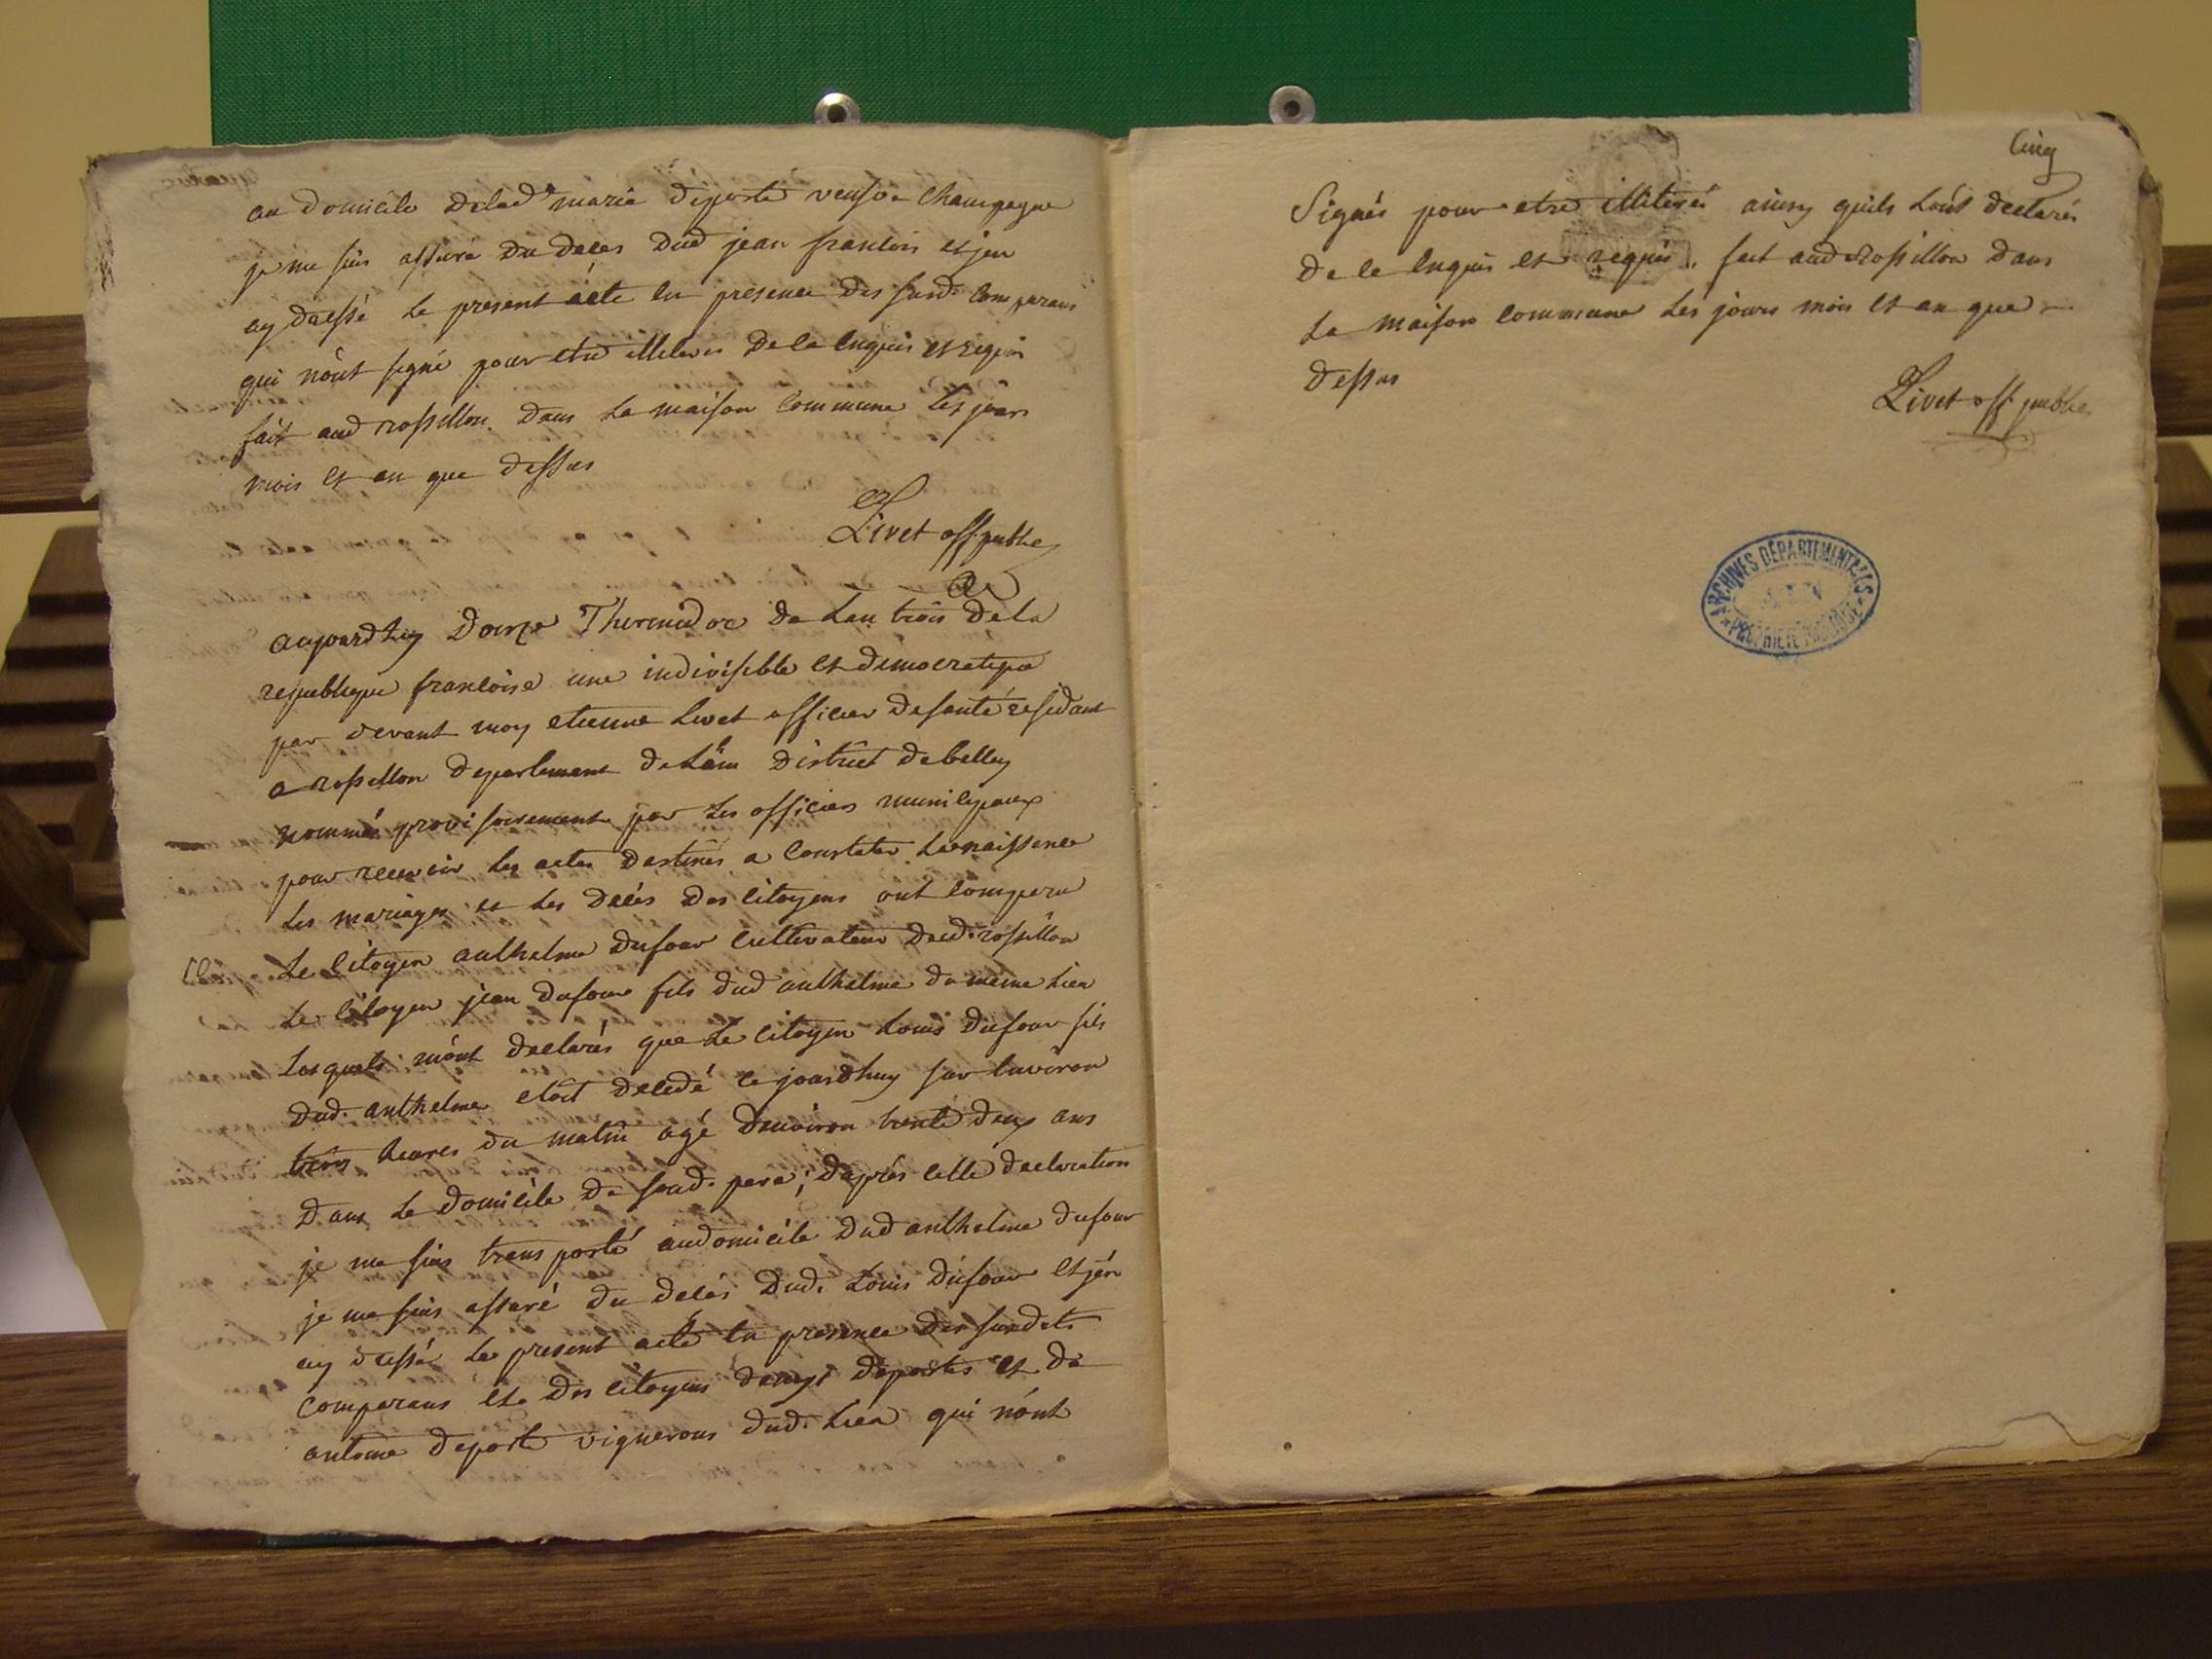 au domicile delad.e marie deporte veufve Champagne
je me suis assuré du deces dud jean francois et jen
ay dressé le present acte en presence des susd. comparans
qui nònt signé pour etre illiteres de ce enquis et requis
fait aud rossillon dans la maison commune les jours
mois et an que dessus
Livet off. public
aujourdhuy douze Thermidor de Lan trois dela
republique francoise une indivisible et democratique
par devant moy etienne Livet officier desanté residant
a rossillon departement de Lain district debelley
nommé provisoirement par les officiers municipaux
pour recevoir les actes destinés a constater la naissance
les mariages et les decés des citoyens ont comparu
le citoyen anthelme dufour cultivateur dud. rossillon
le citoyen jean dufour fils dud anthelme du meme lieu
lesquels mònt declarés que le citoyen Louis dufour fils
dud. anthelme etoit decedé ce jourdhuy sur lenviron
trois heures du matin agé denviron trente deux ans
dans le domicile de sond. pere; daprés cette declaration
je me suis transporté audomicile dud anthelme dufour
je me suis assuré du decés dud. Louis dufour et jén
ay dressé le present acte en presence des susdits
comparans et des citoyens deportes et de
antoine deporte vignerons dud. lieu qui nónt
Cinq
Signés pour etre illiterés ainsy quils lónt declarés
de ce enquis et requis. fait aud rossillon dans
la maison commune les jours mois et an que
dessus
Livet off. public
ARCHIVES DÉPARTEMENTALES
AIN
PROPRIÉTÉ PUBLIQUE